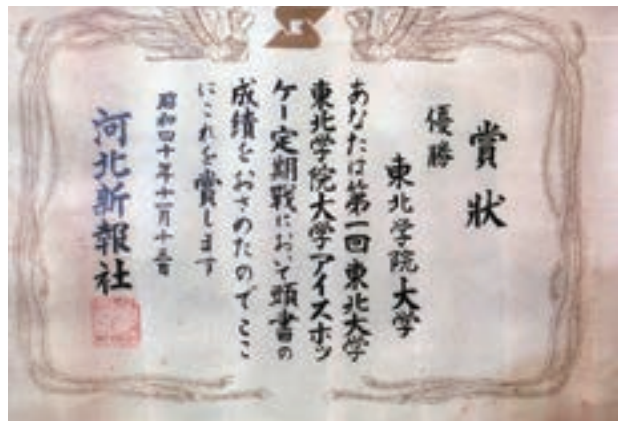 賞状
優勝
東北学院大学
あなたは第一回東北大学
東北学院大学アイスホッ
ケー定期戦において頭書の
成績をおさめたのでここ
にこれを賞します
昭和四十年十一月十三日
河北新報社